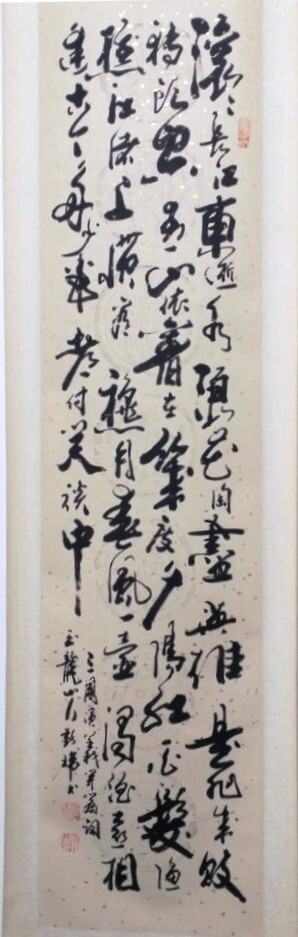 滚滚長江東逝水浪花淘盡英雄是非成敗
轉頭空青山依舊在幾度夕陽紅白髮漁
樵江渚上慣看穐月春風一壺濁酒喜相
逢古今多少事都付笑談中
三國演義開篇詞
玉龍山人彭書